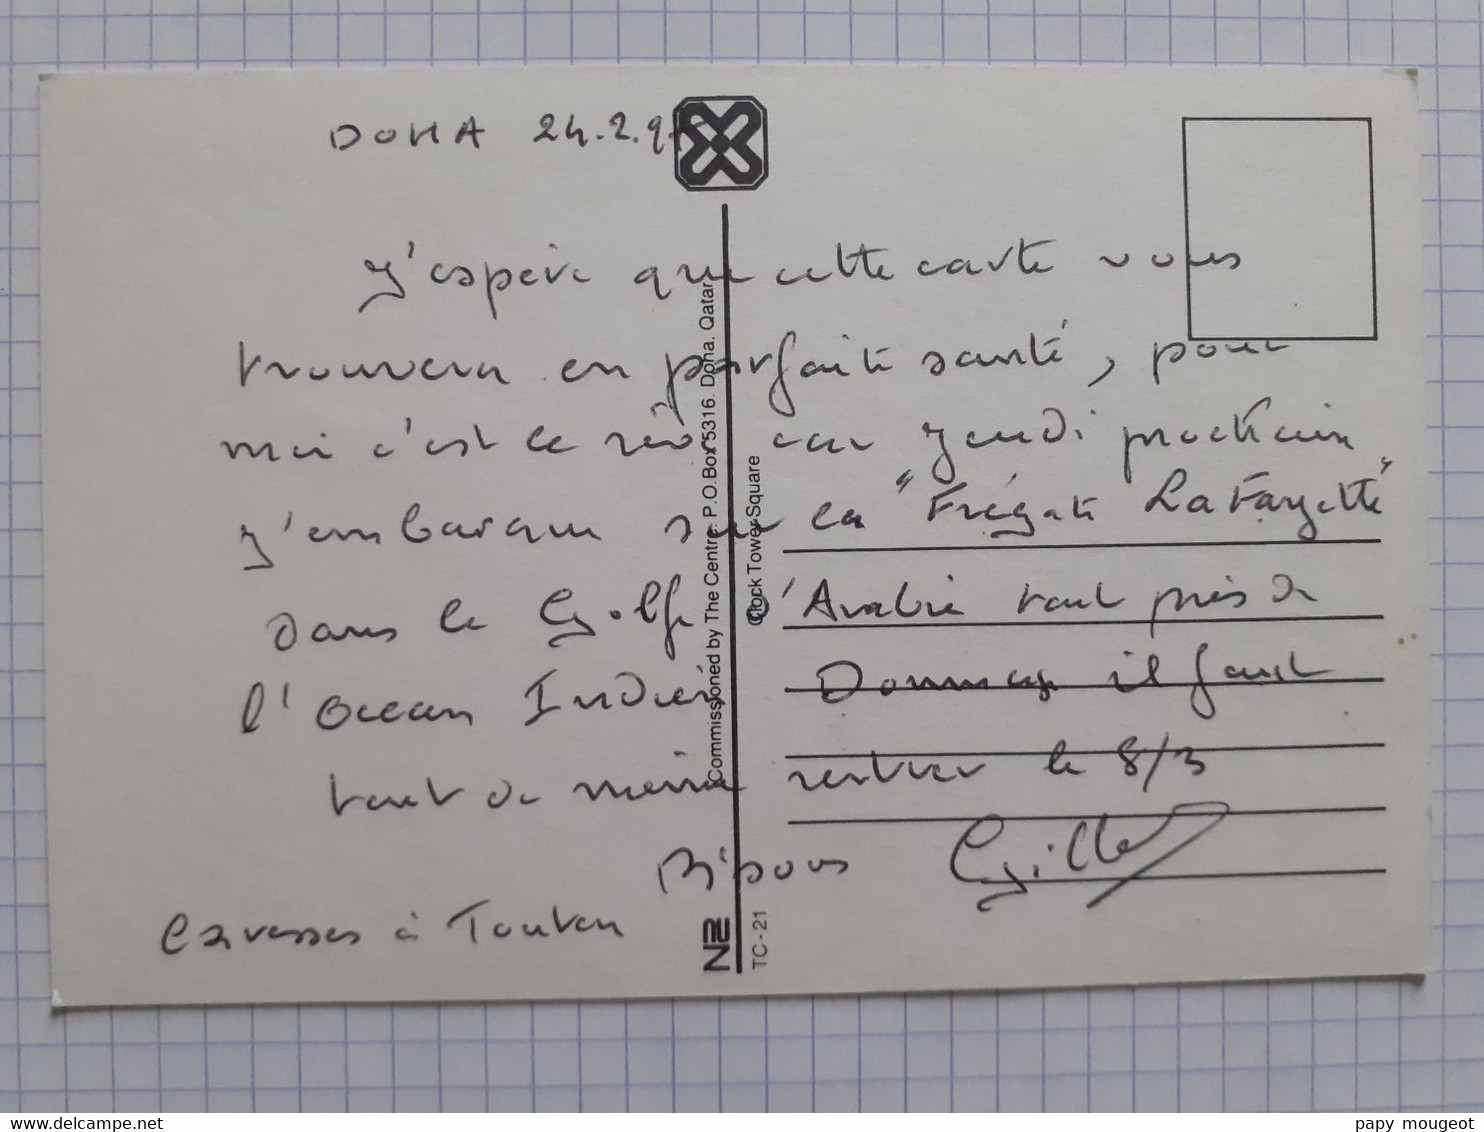 DOHA 24.2.97
J'espère que cette carte vous
trouvera en parfaite santé, pour
moi c'est le rêve car Jeudi prochain
j'embarque sur la "Frégate La Fayette"
dans le Golfe d'Arabie tout près de
l'Océan Indien Dommage il faut
tout de même rentrer le 8/3
Bisous Gilles
Caresses à Toutou
Commissioned by The Centre. P.O.Box 5316. Doha. Qatar
Clock Tower Square
TC-21
www.delcampe.net
papy mougeot